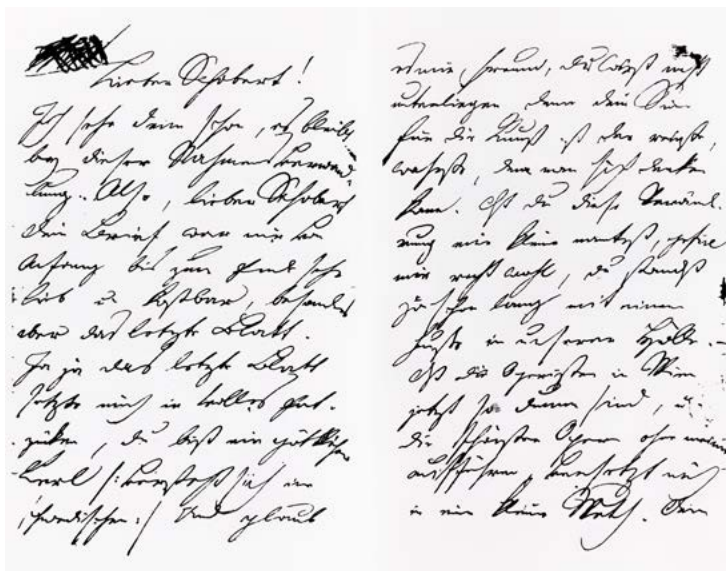 Lieber Schobert!
Ich sehe denn schon, es bleibt
bey dieser Nahmens Verwand-
lung. Also, lieber Schobert
Dein Brief war mir von
Anfang bis zum Ende sehr
lieb u. kostbar, besonders
aber das letzte Blatt.
Ja ja das letzte Blatt
setzte mich in volles Ent-
zücken, du bist ein göttlicher
Kerl /: versteht sich im
schwedischen :/ Und glaub
es mir, Freund, du wirst nicht
unterliegen denn dein Sinn
für die Kunst ist der reinste,
wahrste, den man sich denken
kann. Daß du diese Verände-
rung eine kleine nanntest, gefiel
mir recht wohl, du standst
ja schon lange mit einem
Fuße in unserer Hölle. –
Daß die Operisten in Wien
jetzt so dumm sind, u.
die schönsten Opern ohne meiner
aufführen, versetzt mich
in eine kleine Wuth. Denn